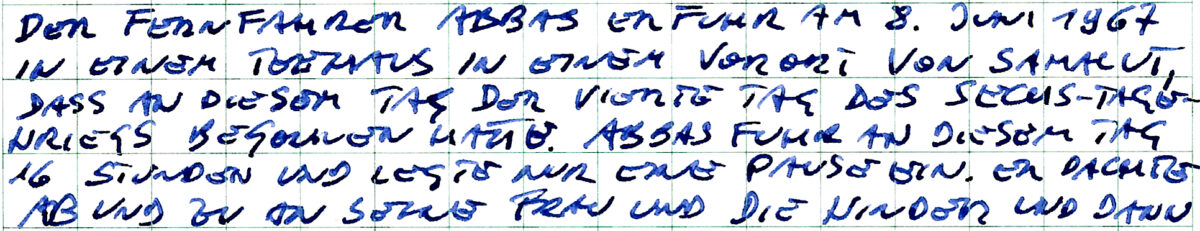 DER FERNFAHRER ABBAS ERFUHR AM 8. JUNI 1967
IN EINEM TEEHAUS IN EINEM VORORT VON SAMALUT,
DASS AN DIESEM TAG DER VIERTE TAG DES SECHS-TAGE-
KRIEGS BEGONNEN HATTE. ABBAS FUHR AN DIESEM TAG
16 STUNDEN UND LEGTE NUR EINE PAUSE EIN. ER DACHTE
AB UND ZU AN SEINE FRAU UND DIE KINDER UND DANN